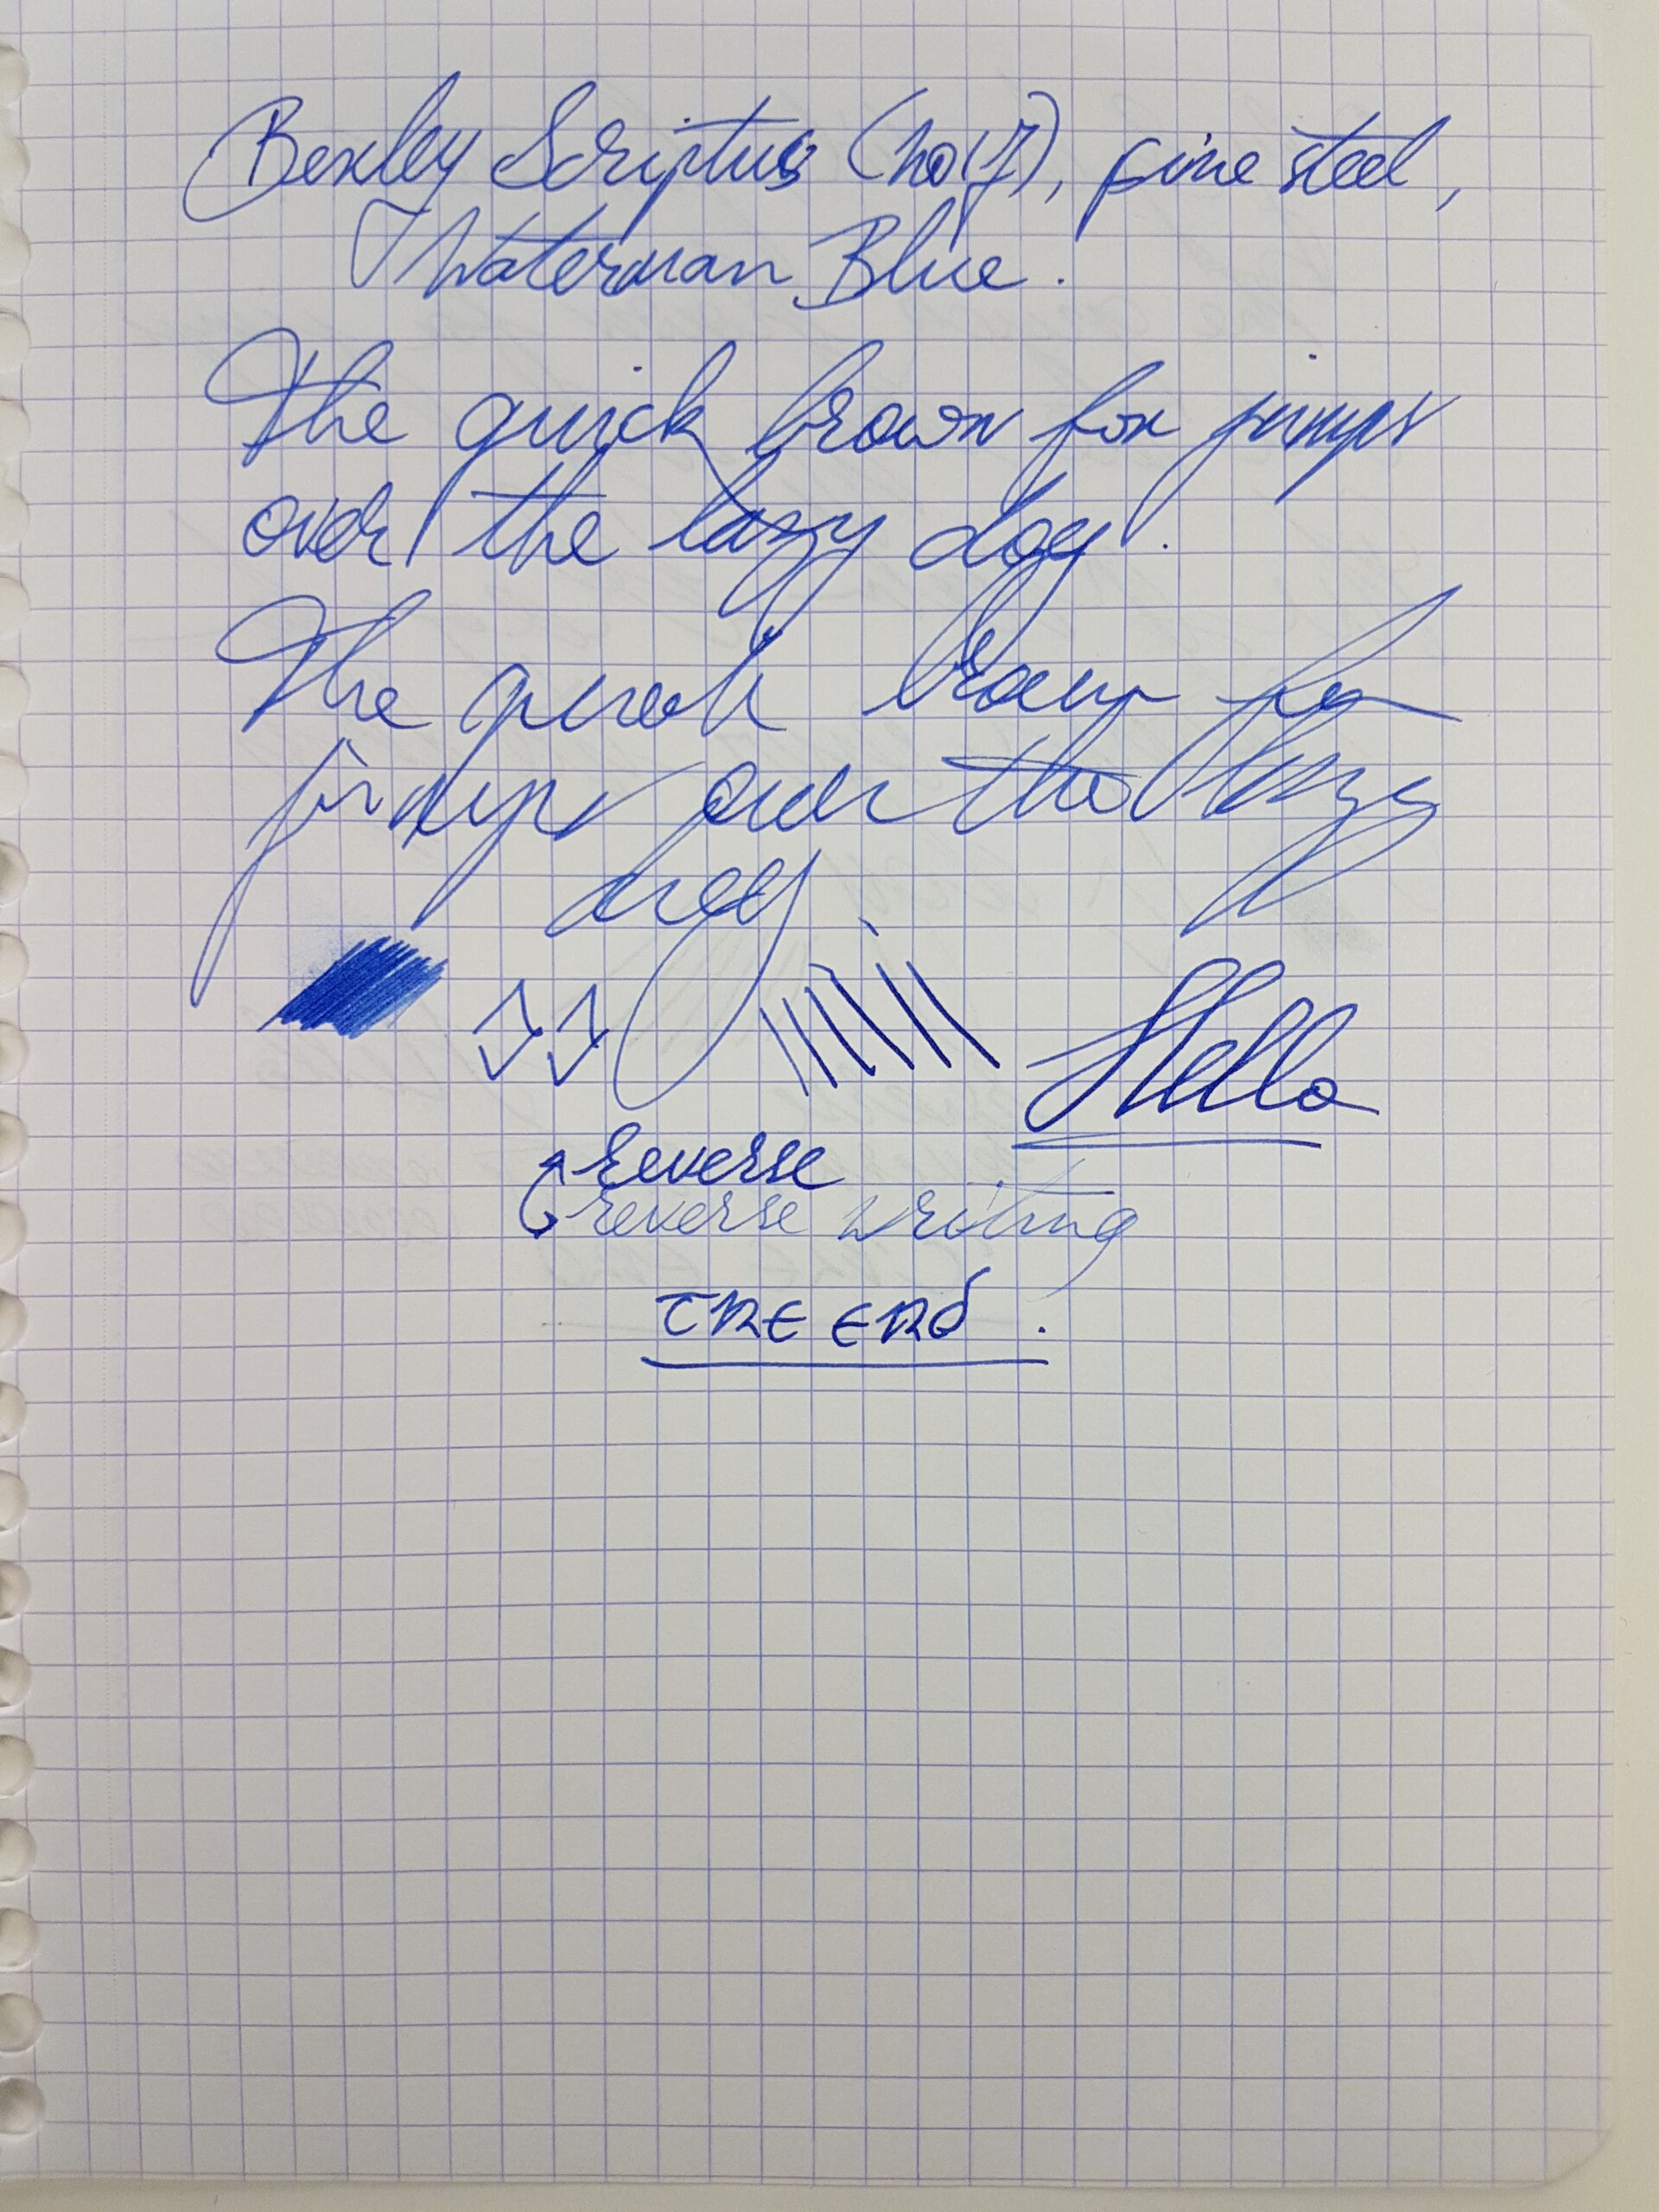 Bexley Scriptus (no17), fine steel,
Waterman Blue.
The quick brown fox jumps
over the lazy dog.
The quick brown fox
jumps over the lazy
dog
Hello
reverse
reverse writing
THE END.